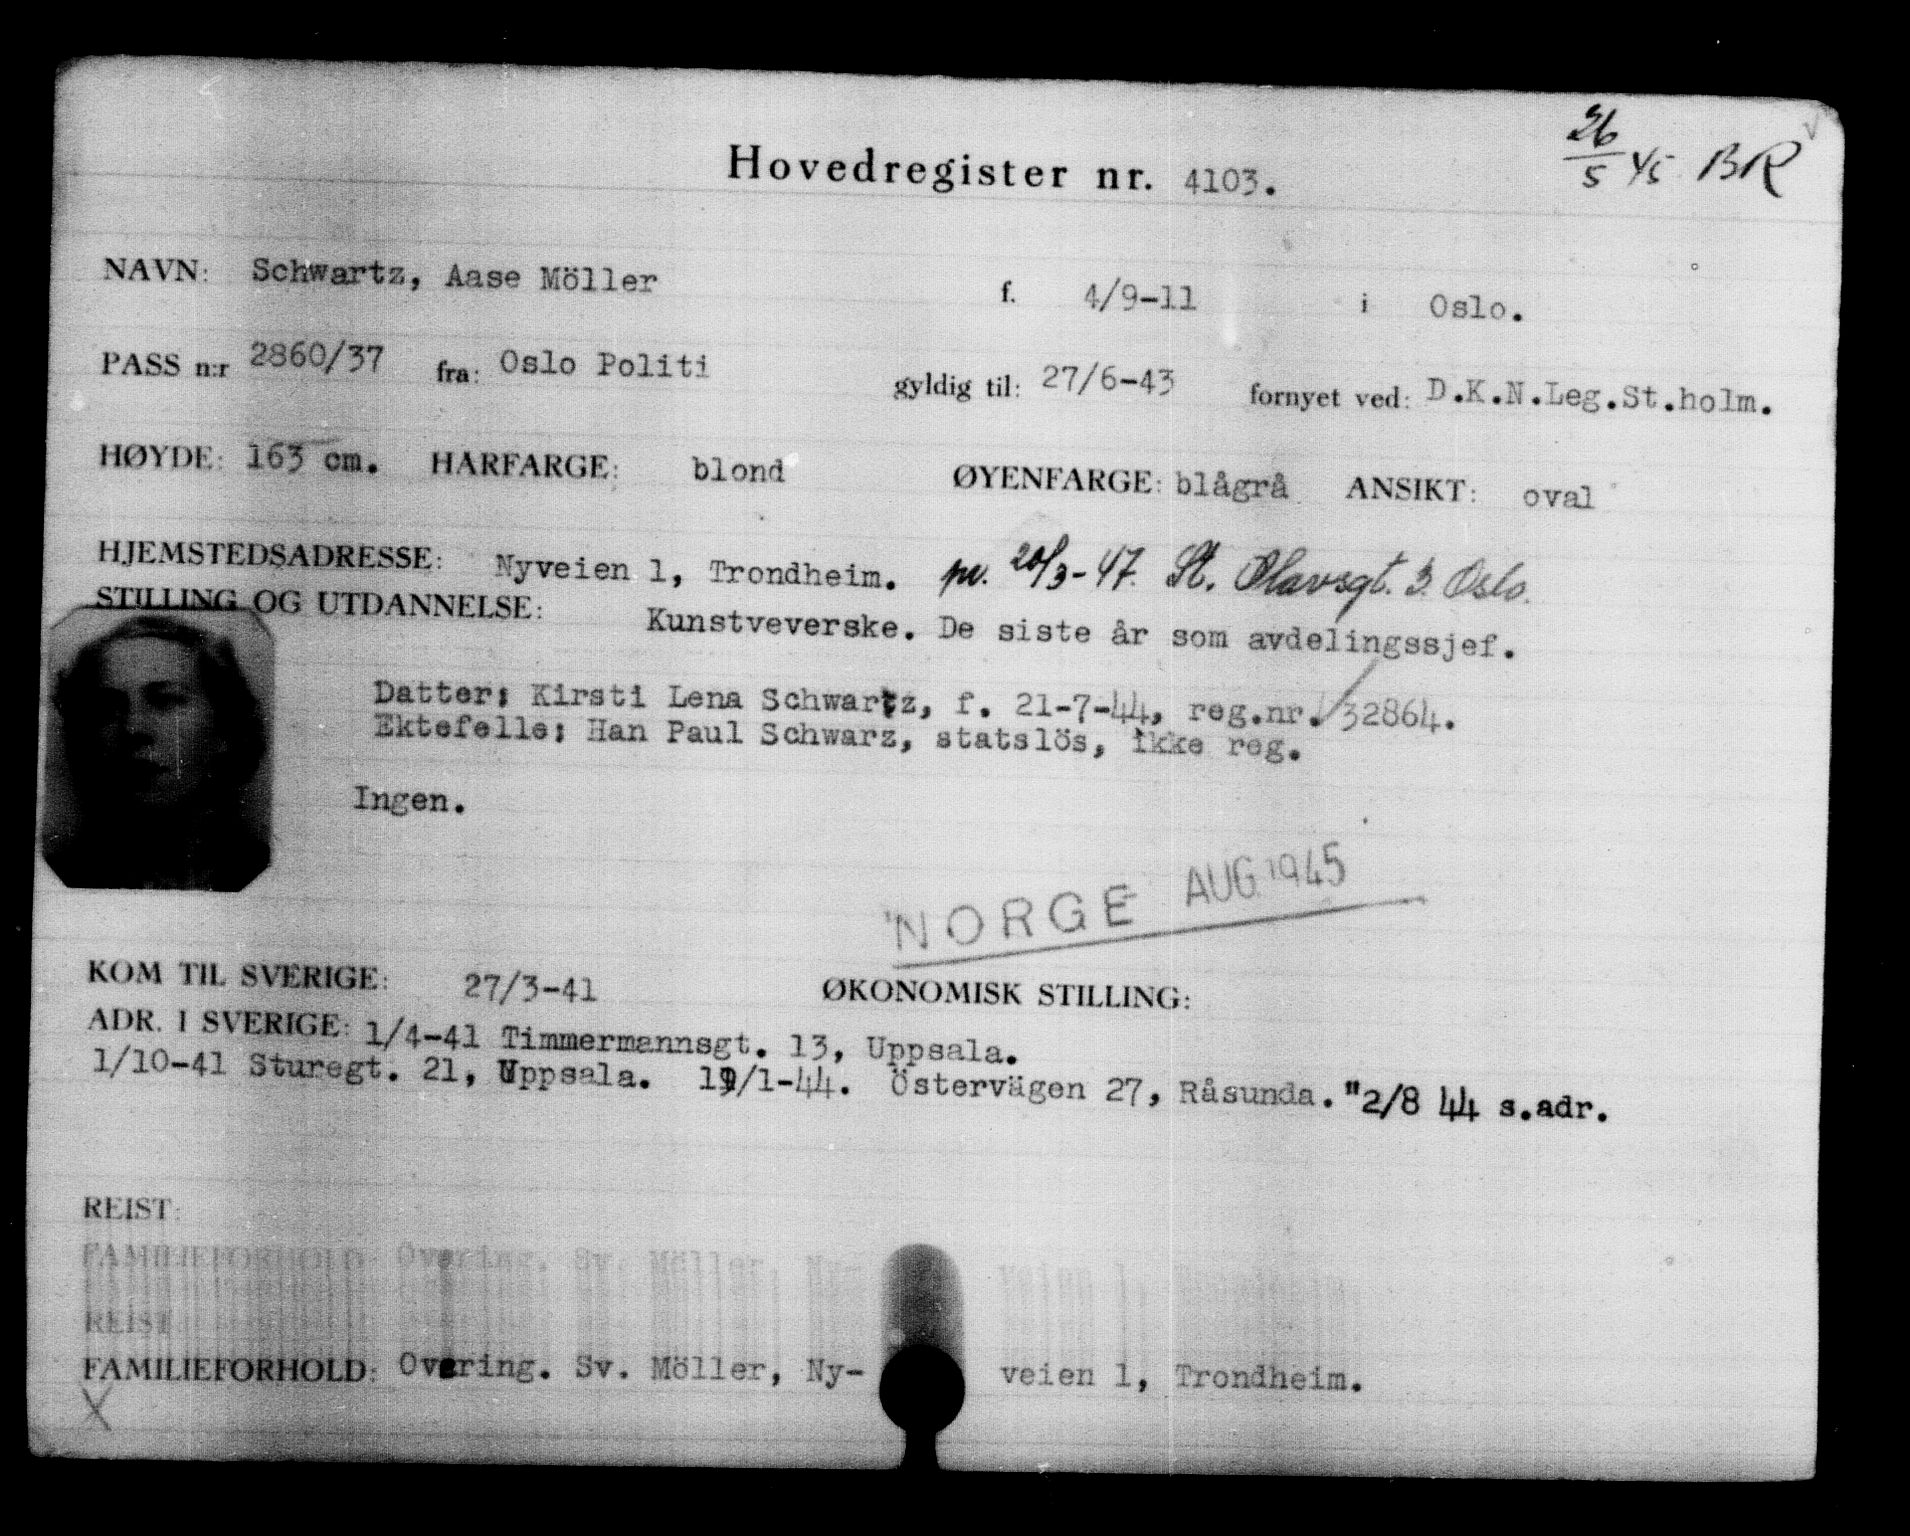 26/5 45 BR
Hovedregister nr. 4103.
NAVN: Schwartz, Aase Möller f. 4/9-11 i Oslo.
PASS n:r 2860/37 fra: Oslo Politi gyldig til: 27/6-43 fornyet ved: D.K.N.Leg.St.holm.
HØYDE: 163 cm. HÅRFARGE: blond ØYENFARGE: blågrå ANSIKT: oval
HJEMSTEDSADRESSE: Nyveien 1, Trondheim. pr. 20/3-47. St. Olavsgt. 3 Oslo.
STILLING OG UTDANNELSE: Kunstveverske. De siste år som avdelingssjef.
Datter: Kirsti Lena Schwartz, f. 21-7-44, reg.nr. 32864.
Ektefelle: Han Paul Schwarz, statslös, ikke reg.
Ingen.
NORGE AUG 1945
KOM TIL SVERIGE: 27/3-41 ØKONOMISK STILLING:
ADR. I SVERIGE: 1/4-41 Timmermannsgt. 13, Uppsala.
1/10-41 Sturegt. 21, Uppsala. 19/1-44. Östervägen 27, Råsunda. "2/8 44 s.adr.
REIST:
FAMILIEFORHOLD: Overing. Sv. Möller, Ny- veien 1, Trondheim.
REIST
FAMILIEFORHOLD: Overing. Sv. Möller, Ny- veien 1, Trondheim.
X